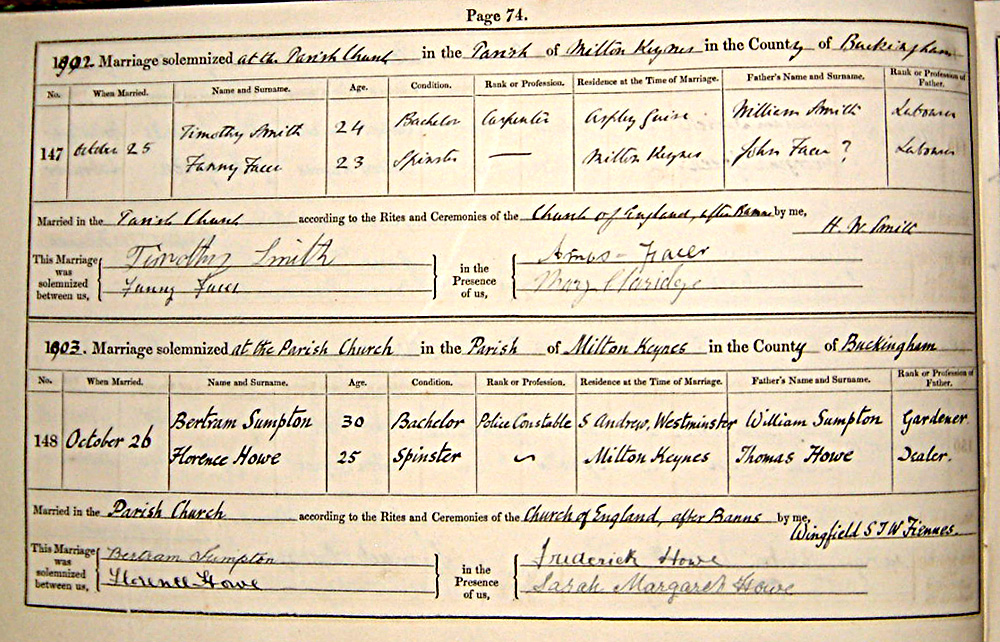 Page 74.
1902. Marriage solemnized at the Parish Church in the Parish of Milton Keynes in the County of Buckingham
No. When Married. Name and Surname. Age. Condition. Rank or Profession. Residence at the Time of Marriage. Father's Name and Surname. Rank or Profession of Father.
Timothy Smith 24 Bachelor Carpenter Aspley Guise William Smith Labourer
147 October 25
Fanny Facer 23 Spinster — Milton Keynes John Facer ? Labourer
Married in the Parish Church according to the Rites and Ceremonies of the Church of England, after Banns by me,
H. W. Smith
This Marriage was solemnized between us,
Timothy Smith
Fanny Facer
in the Presence of us,
Facer
Mary Claridge
1903. Marriage solemnized at the Parish Church in the Parish of Milton Keynes in the County of Buckingham
No. When Married. Name and Surname. Age. Condition. Rank or Profession. Residence at the Time of Marriage. Father's Name and Surname. Rank or Profession of Father.
Bertram Sumpton 30 Bachelor Police Constable S Andrew, Westminster William Sumpton Gardener.
148 October 26
Florence Howe 25 Spinster ~ Milton Keynes Thomas Howe Dealer.
Married in the Parish Church according to the Rites and Ceremonies of the Church of England, after Banns by me,
Wingfield S T W Fiennes.
This Marriage was solemnized between us,
Bertram Sumpton
Florence Howe
in the Presence of us,
Frederick Howe
Sarah Margaret Howe